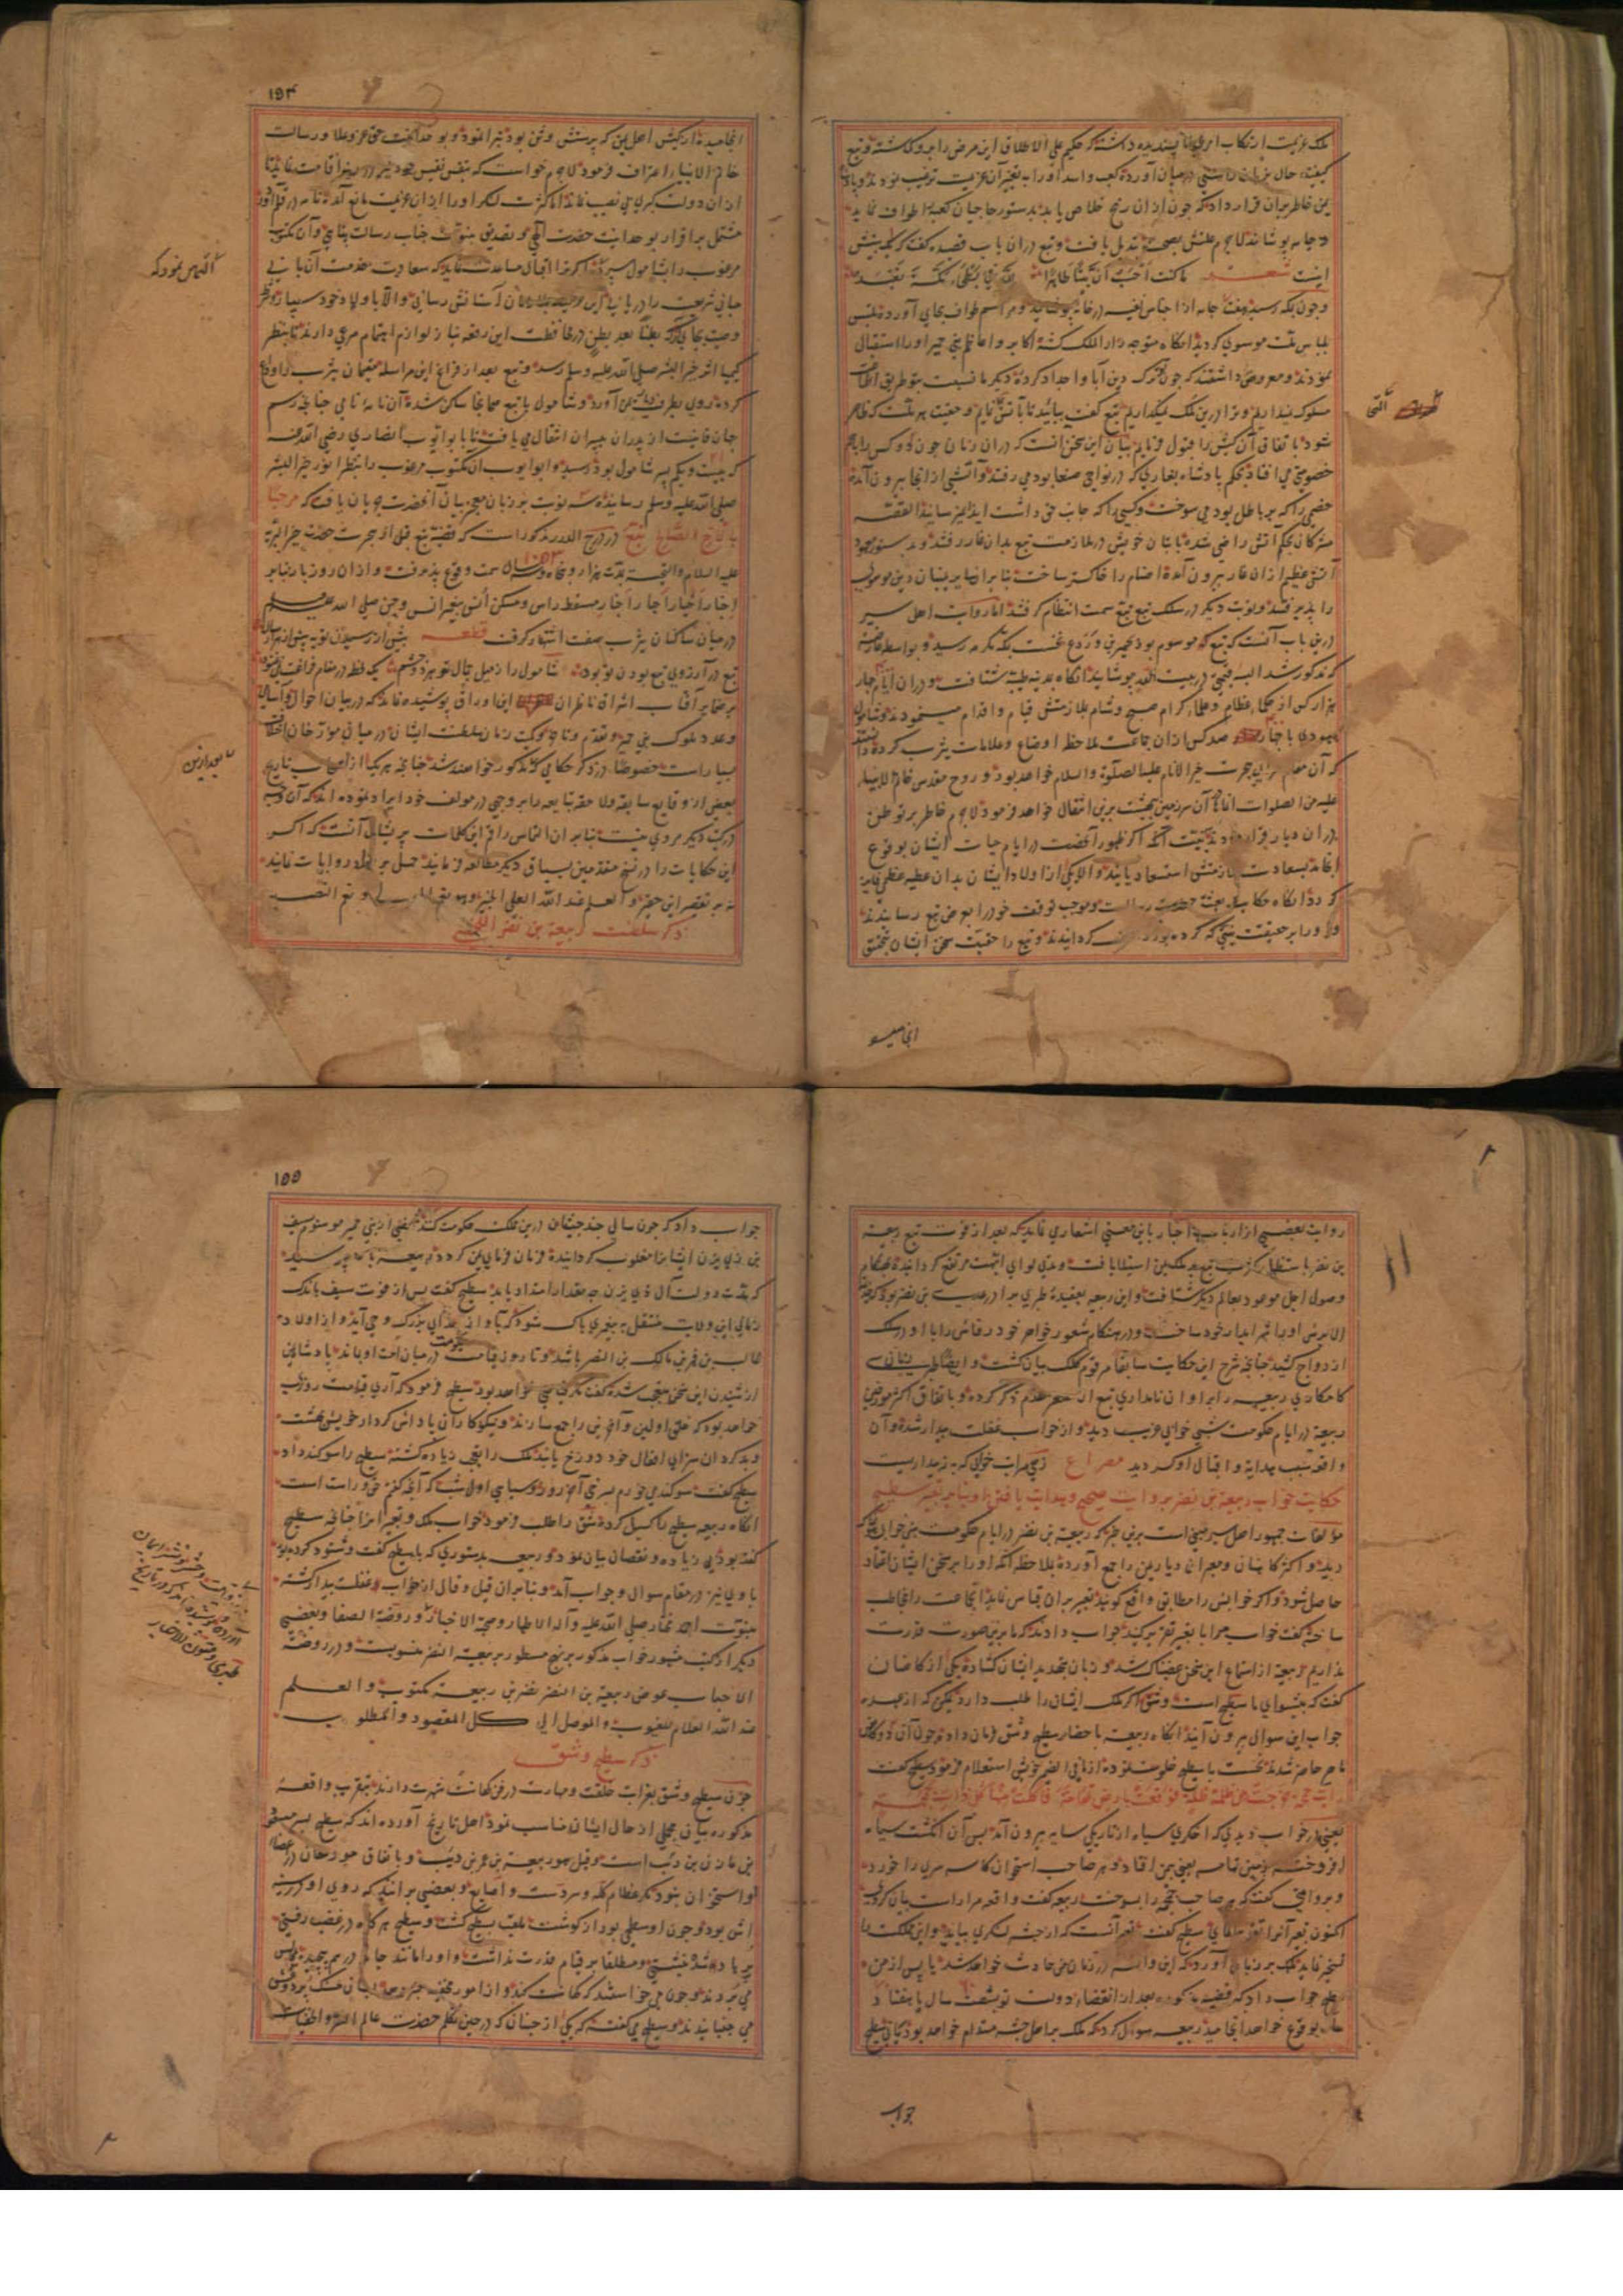 ملک عزیمت ارتکاب امری ناپسندیده داشته که حکیم علی الاطلاق این مرض را برو گماشته و تبع
کیفیت حال بزبان راستی درمیان آورده کعب و اسد او را به تغییر آن عزیمت ترغیب نمودند
خاطر بران قرار داد که چون ازان رنج خلاص یابد بدستور حاجیان کعبه را طواف نماید
و جامه پوشاند لاجرم علتش بصحت تبدیل یافت و تبع دران باب قصیده گفت که یک بیتش
اینست شعر ما کنت احسب ان بیتا طاهرا لله فی بطحاء مکة یعبد
و چون بمکه رسید هفت جامه از اجناس نفیسه در خانه پوشانید و مراسم طواف بجای آورده ملبس
بلباس ملت موسوی گردید انگاه متوجه دار الملک گشته اکابر و اعاظم بنی حمیر او را استقبال
نمودند و معروض داشتند که چون ترک دین آبا و اجداد کرده دیگر ما نسبت بتو طریق اطاعت
مسلوک نمیداریم و ترا درین ملک نمیگذاریم تبع گفت بیائید تا باتش تحاکم نمایم و حقیت هر ملت که ظاهر
شود باتفاق آن کیش را قبول فرمایم بیان این سخن انست که دران زمان چون دو کس را باهم
خصومتی می افتاد بحکم پادشاه بغاری که در نواحی صنعا بود می رفتند و آتشی از انجا بیرون آمده
خصمی را که بر باطل بود می سوخت و کسی را که جانب حق داشت ایذا نمیرسانید القصه
مشرکان بحکم آتش راضی شده با بتان خویش در ملازمت تبع بدان غار رفتند و بدستور معهود
آتشی عظیم ازان غار بیرون آمده اصنام را خاکستر ساخت بنابران سایر یمنیان دین موسوی
را پذیرفتند و نوبت دیگر در سلک تبع تبع سمت انتظام گرفتند اما روایت اهل سیر
درین باب آنست که تبع که موسوم بود بحمیر بن وردع نخست بمکه مکرمه رسید و بواسطه عارضه
که مذکور شد البسه قیمتی در بیت الله پوشانید انگاه بمدینه طیبه شتافت و دران ایام چهار
هزار کس از حکماء عظام و علماء کرام صبح و شام بملازمتش قیام و اقدام مینمودند و شامول
یهودی با چهار صد کس ازان جماعت بملاحظه اوضاع و علامات یثرب کرده دانستند
که آن مقام هجرت خیر الانام علیه الصلوة والسلام خواهد بود و روح مقدس خاتم الانبیا
علیه من الصلوات انماها آن سرزمین بهشت برین انتقال خواهد فرمود لاجرم خاطر بر توطن
دران دیار قرار دادند بنیت آنکه اگر ظهور آنحضرت در ایام حیات ایشان بوقوع
انجامد بسعادت ملازمتش استسعاد یابند و الا یکی از اولاد ایشان بدان عطیه عظمی فایز
گردد انگاه حکایت بعثت حضرت رسالت و موجب توقف خود را بعرض تبع رسانیدند
و او را بر حقیقت نیتی که کرده بودند گردانیدند و تبع را حقیت سخن ایشان بتحقیق
انجامیده
طریق آتش
۱۵۴
انجامیده از کیش اهل یمن که پرستش وثن بود تبرا نمود و بوحدانیت حق عز و علا و رسالت
خاتم الانبیا را اعتراف فرمود لاجرم خواست که بنفس نفیس خود نیز در مدینه اقامت نماید تا
ازان دولت کبری بی نصیب نماند اما کثرت لشکر او را ازان عزیمت مانع آمد نامه در قلم آورد
مشتمل بر اقرار بوحدانیت حضرت الهی و تصدیق بنبوت جناب رسالت پناهی و آن مکتوب
مرغوب را بشامول سپرد تا اگر ترا اقبال مساعدت نماید که سعادت خدمت آن بانی
مبانی شریعت را دریابی این را بملازمان آستانش رسانی و الا باولاد خود سپار و شرط
وصیت بجای آر که بطنا بعد بطن در محافظت این رقعه نیاز لوازم اهتمام مرعی دارند تا بنظر
کیمیا اثر خیر البشر صلی الله علیه وسلم رسد و تبع بعد از فراغ این مراسله مقیمان یثرب را وداع
کرده روی بطرف یمن آورد و شامول با تبع همانجا ساکن شده آن نامه نامی چنانچه رسم
جهان فانیست از پدران بپسران انتقال می یافت تا بابو ایوب انصاری رضی الله عنه
که بیست و یکم پسر شامول بود رسید و ابو ایوب آن مکتوب مرغوب را بنظر انور خیر البشر
صلی الله علیه وسلم رسانیده سه نوبت بر زبان معجز بیان آنحضرت جریان یافت که مرحبا
بالاخ الصالح تبع در درج الدرر مذکور است که قضیه تبع قبل از هجرت حضرت خیر البریه
علیه السلام والتحیه بمدت هزار و پنجاه و سه سال سمت وقوع پذیرفت و ازان روز باز بنابر
اخبار اخیار احبار خبار مسقط راس و مسکن انس پیغمبر انس و جن صلی الله علیه وسلم
درمیان ساکنان یثرب صفت اشتهار گرفت قطعه پیش از رسیدن تو به بیش از هزار سال
تبع در آرزوی تبع بودن تو بود شامول را ز میل جمال تو هر دو چشم یک لحظه در مقام فراغت نمی غنود
بر ضمایر آفتاب اشراق ناظران این اوراق پوشیده نماند که در بیان احوال و اسامی
و عدد ملوک بنی حمیر و تقدم و تاخر و کمیت زمان سلطنت ایشان درمیان مورخان اختلاف
بسیار است خصوصا در ذکر حکامی که مذکور خواهند شد چنانچه هریک از اصحاب تاریخ
بعض از وقایع سابقه و لاحقه تبابعه را بر وجهی در مولف خود ایراد نموده اند که آن وجه
در کتب دیگر مروی نیست بنابران التماس راقم این کلمات پریشان آنست که اگر
این حکایات را در نسخ متقدمین بسیاق دیگر مطالعه فرمایند حمل بر اختلاف روایات نمایند
نه بر تقصیر این حقیر و العلم عند الله العلی الخبیر
ذکر سلطنت ربیعة بن نضر اللخمی
التماس نمود که
بعد ازین
روایت بعضی از ارباب اخبار باین معنی اشعاری نماید که بعد از فوت تبع ربیعة
بن نضر باستظهار کثرت تبع بر ملک یمن استیلا یافت و مدتی لوای ابهت مرتفع گردانیده هنگام
وصول اجل موعود بعالم دیگر شتافت و این ربیعه بعقیده طبری پدر عدی بن نضر بود که جذیمة
الابرش او را شرابدار خود ساخت و در هنگام شعور خواهر خود رقاش را با او در سلک
ازدواج کشید چنانچه شرح این حکایت سابقا مرقوم کلک بیان گشت و ایضا طبری زمان
کامکاری ربیعه را بر اوان نامداری تبع اصغر مقدم ذکر کرده و باتفاق اکثر مورخین
ربیعه در ایام حکومت شبی خوابی غریب دید و از خواب غفلت بیدار شده و آن
واقعه سبب هدایة و اقبال او گردید مصراع زهی مراتب خوابی که به ز بیداریست
حکایت خواب ربیعه بن نضر بروایت صحیح و هدایت یافتن او بنابر تعبیر سطیح
مولفات جمهور اهل سیر مبنی است برین خبر که ربیعة بن نضر در ایام حکومت شبی خوابی
دید و اکثر کاهنان و معبران دیار یمن را جمع آورده بملاحظه آنکه او را بر سخن ایشان اعتماد
حاصل شود و اگر خوابش را مطابق واقع گویند تعبیر بران قیاس نماید انجماعت را مخاطب
ساخته گفت خواب مرا با تعبیر تقریر کنید جواب دادند که ما برین صورت قدرت
نداریم ربیعه از استماع این سخن غضبناک شد و زبان بتهدید ایشان گشاده یکی از کاهنان
گفت که پیشوای ما سطیح است و شق اگر ملک ایشان را طلب دارد ممکن که از عهده
جواب این سوال بیرون آیند انگاه ربیعه باحضار سطیح و شق فرمان داد و چون آن دو کاهن
ماهر حاضر شدند نخست با سطیح خلوت نموده از مافی الضمیر خویش استعلام فرمود سطیح گفت
رایت حممة خرجت من ظلمة فوقعت بارض تهامة فاکلت منها کل ذات جمجمة
یعنی در خواب دیدی که اخگری سیاه از تاریکی سایه بیرون آمد پس آن انگشت سیاه
افروخته بزمین تهامه یعنی یمن افتاد و هر صاحب استخوان کاسه سری را خورد
و بروایتی گفت که هر صاحب جمجمه را بسوخت ربیعه گفت واقعه مرا راست بیان کردی
اکنون تعبیر آنرا تقریر نمای سطیح گفت تعبیر آنست که از حبشه لشکری بیاید و این مملکت را
تسخیر نماید ملک بر زبان آورد که این واقعه در زمان من حادث خواهد شد یا پس از من
سطیح جواب داد که قضیه مذکوره بعد از انقضاء دولت تو بشصت سال یا هفتاد
سال بوقوع خواهد انجامید ربیعه سوال کرد که ملک بر اهل حبشه مستدام خواهد بود یا نی سطیح
جواب
۱۵۵
جواب داد که چون سالی چند حبشیان درین مملکت حکومت کنند شخصی از بنی حمیر موسوم بسیف
بن ذی یزن ایشانرا مغلوب گردانیده فرمان فرمای یمن گردد ربیعه باز پرسید
که مدت دولت آل ذی یزن چه مقدار امتداد یابد سطیح گفت پس از فوت سیف باندک
زمانی این ولایت منتقل به پیغمبری پاک شود که باو از خدای بزرگ وحی آید و از اولاد
غالب بن فهر بن مالک بن النضر باشد و تا روز قیامت حکومت درمیان امت او بماند پادشاه یمن
از شنیدن این سخن متعجب شده گفت مگر قیامتی خواهد بود سطیح فرمود که آری قیامت روزی
خواهد بود که خلق اولین و آخرین را جمع سازند و نیکوکاران پاداش کردار خویش بهشت
و بدکرداران سزای افعال خود دوزخ یابند ملک را تعجب زیاده گشته سطیح را سوگند داد
سطیح گفت سوگند می خورم بسرخی آخر روز و سیاهی اول شب که آنچه گفتم حق و راست است
انگاه ربیعه سطیح را گسیل کرده شق را طلب فرمود خواب ملک و تعبیر آنرا چنانچه سطیح
گفته بود بی زیاده و نقصان بیان نمود و ربیعه بدستوری که با سطیح گفت و شنود کرده بود
با وی نیز در مقام سوال و جواب آمد و بنابران قیل و قال از خواب غفلت بیدار گشته
بنبوت احمد مختار صلی الله علیه و آله الاطهار وصحبه الاخیار و روضة الصفا و بعضی
دیگر از کتب مشهور خواب مذکور برنهج مسطور بربیعة النضر منسوبست و در روضة
الاحباب عوض ربیعة بن النضر نضر بن ربیعة مکتوب والعلم
عند الله العلام للغیوب والموصل الی کل المقصود والمطلوب
ذکر سطیح و شق
چون سطیح و شق بغرابت خلقت و مهارت در فن کهانت شهرت دارند بتقریب واقعه
مذکوره بیان مجملی از حال ایشان مناسب نمود اهل تاریخ آورده اند که سطیح بسر مسعود
بن مازن بن ذئب است و قیل هو ربیعة بن عمر بن ذئب و باتفاق مورخان در اعضاء
او استخوان نبود مگر عظام کله و سر دست و اصابع و بعضی برانند که روی او در سینه
اش بود و چون او سطحی بود از گوشت ملقب بسطیح گشت و سطیح هرگاه در غضب رفتی
پر باد شده بنشستی و مطلقا بر قیام قدرت نداشت و او را مانند جامه درهم پیچیده بمجالس
می بردند و چون می خواستند که کهانت کند و از امور مخفیه خبر دهد بسان مشک پر دوغش
می جنبانیدند و سطیح می گفته که یکی از جنیان که در حین تکلم حضرت عالم السر والخفیات